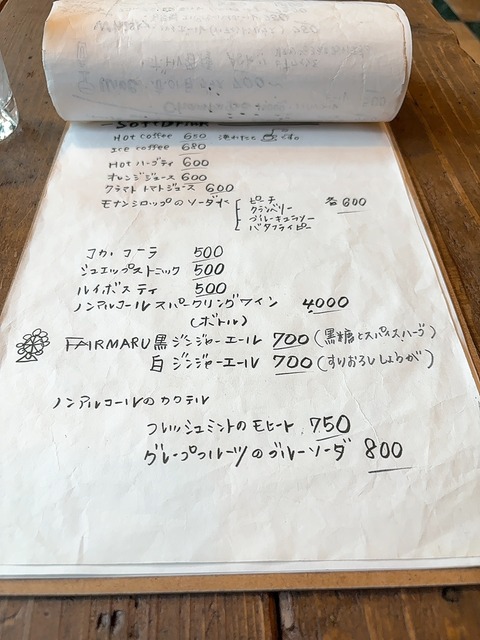 SOFT DRINK
Hot coffee 650 淹れたて
ice coffee 680
Hot ハーブティ 600
オレンジジュース 600
クラマト トマトジュース 600
モナンシロップのソーダ水 ピーチ 各600
クランベリー
ブルーキュラソー
バタフライピー
コカ コーラ 500
シュエップストニック 500
ルイボス ティ 500
ノンアルコール スパークリングワイン 4000
(ボトル)
FAIRMARU 黒 ジンジャーエール 700 (黒糖とスパイス、ハーブ)
白 ジンジャーエール 700 (すりおろし しょうが)
ノンアルコールのカクテル
フレッシュミントのモヒート 750
グレープフルーツのブルーソーダ 800